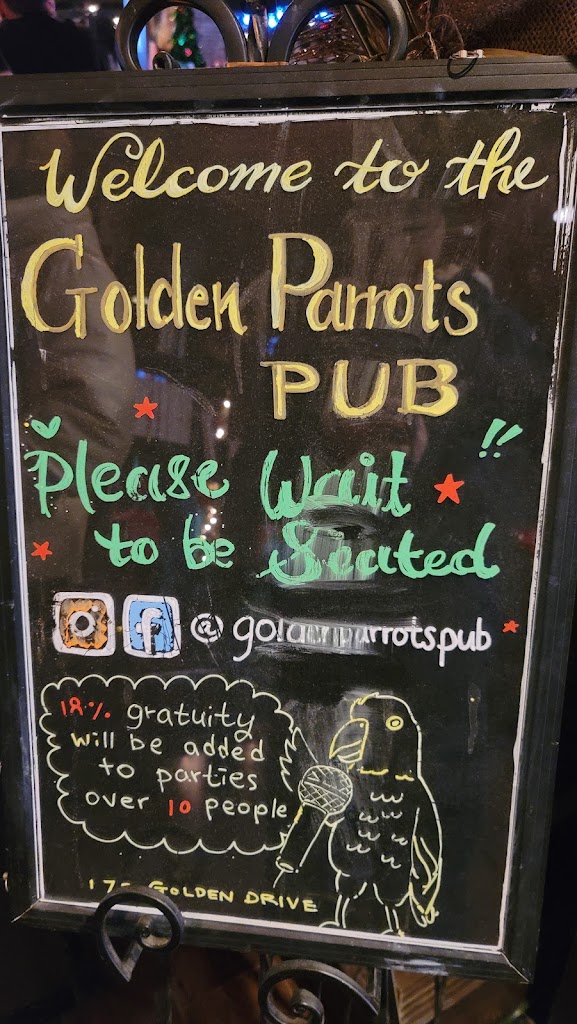 Welcome to the
Golden Parrots
PUB
Please Wait !!
to be Seated
@goldenparrotspub
18% gratuity
will be added
to parties
over 10 people
GOLDEN DRIVE